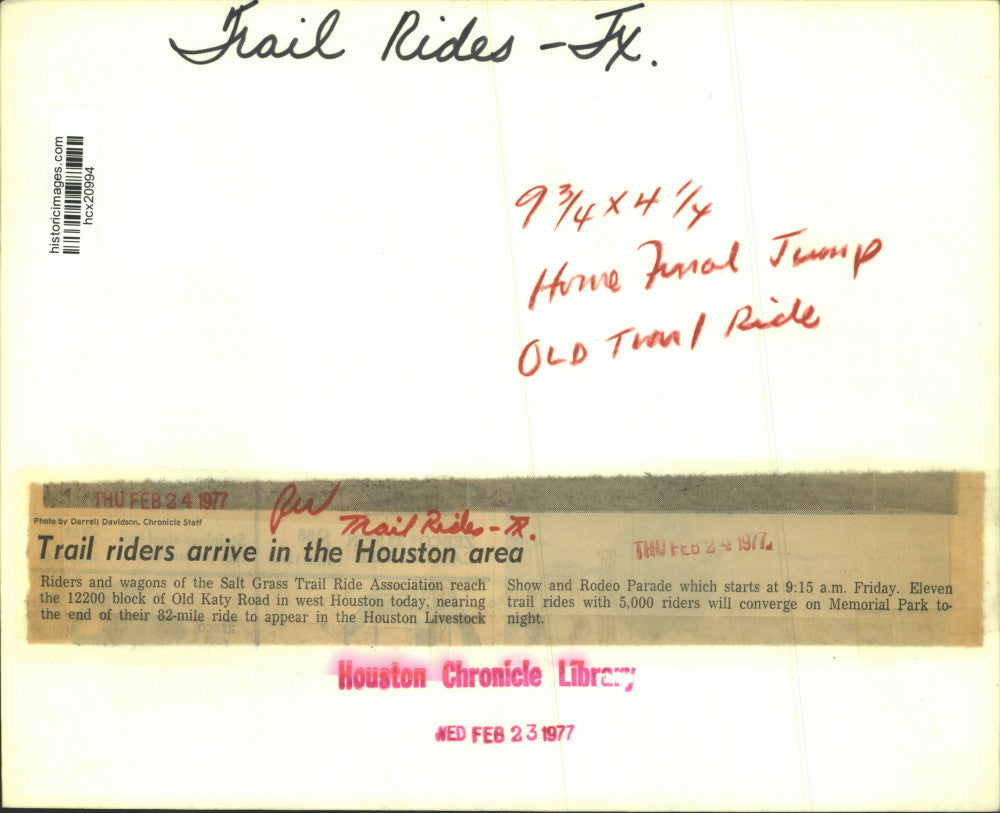 Trail Rides - Tx.
historicimages.com
hcx20994
9 3/4 x 4 1/4
Home Final Jump
OLD Trail Ride
THU FEB 24 1977
Trail Rides - Tx.
Photo by Darrell Davidson, Chronicle Staff
THU FEB 24 1977
Trail riders arrive in the Houston area
Riders and wagons of the Salt Grass Trail Ride Association reach
the 12200 block of Old Katy Road in west Houston today, nearing
the end of their 82-mile ride to appear in the Houston Livestock
Show and Rodeo Parade which starts at 9:15 a.m. Friday. Eleven
trail rides with 5,000 riders will converge on Memorial Park to-
night.
Houston Chronicle Library
WED FEB 23 1977